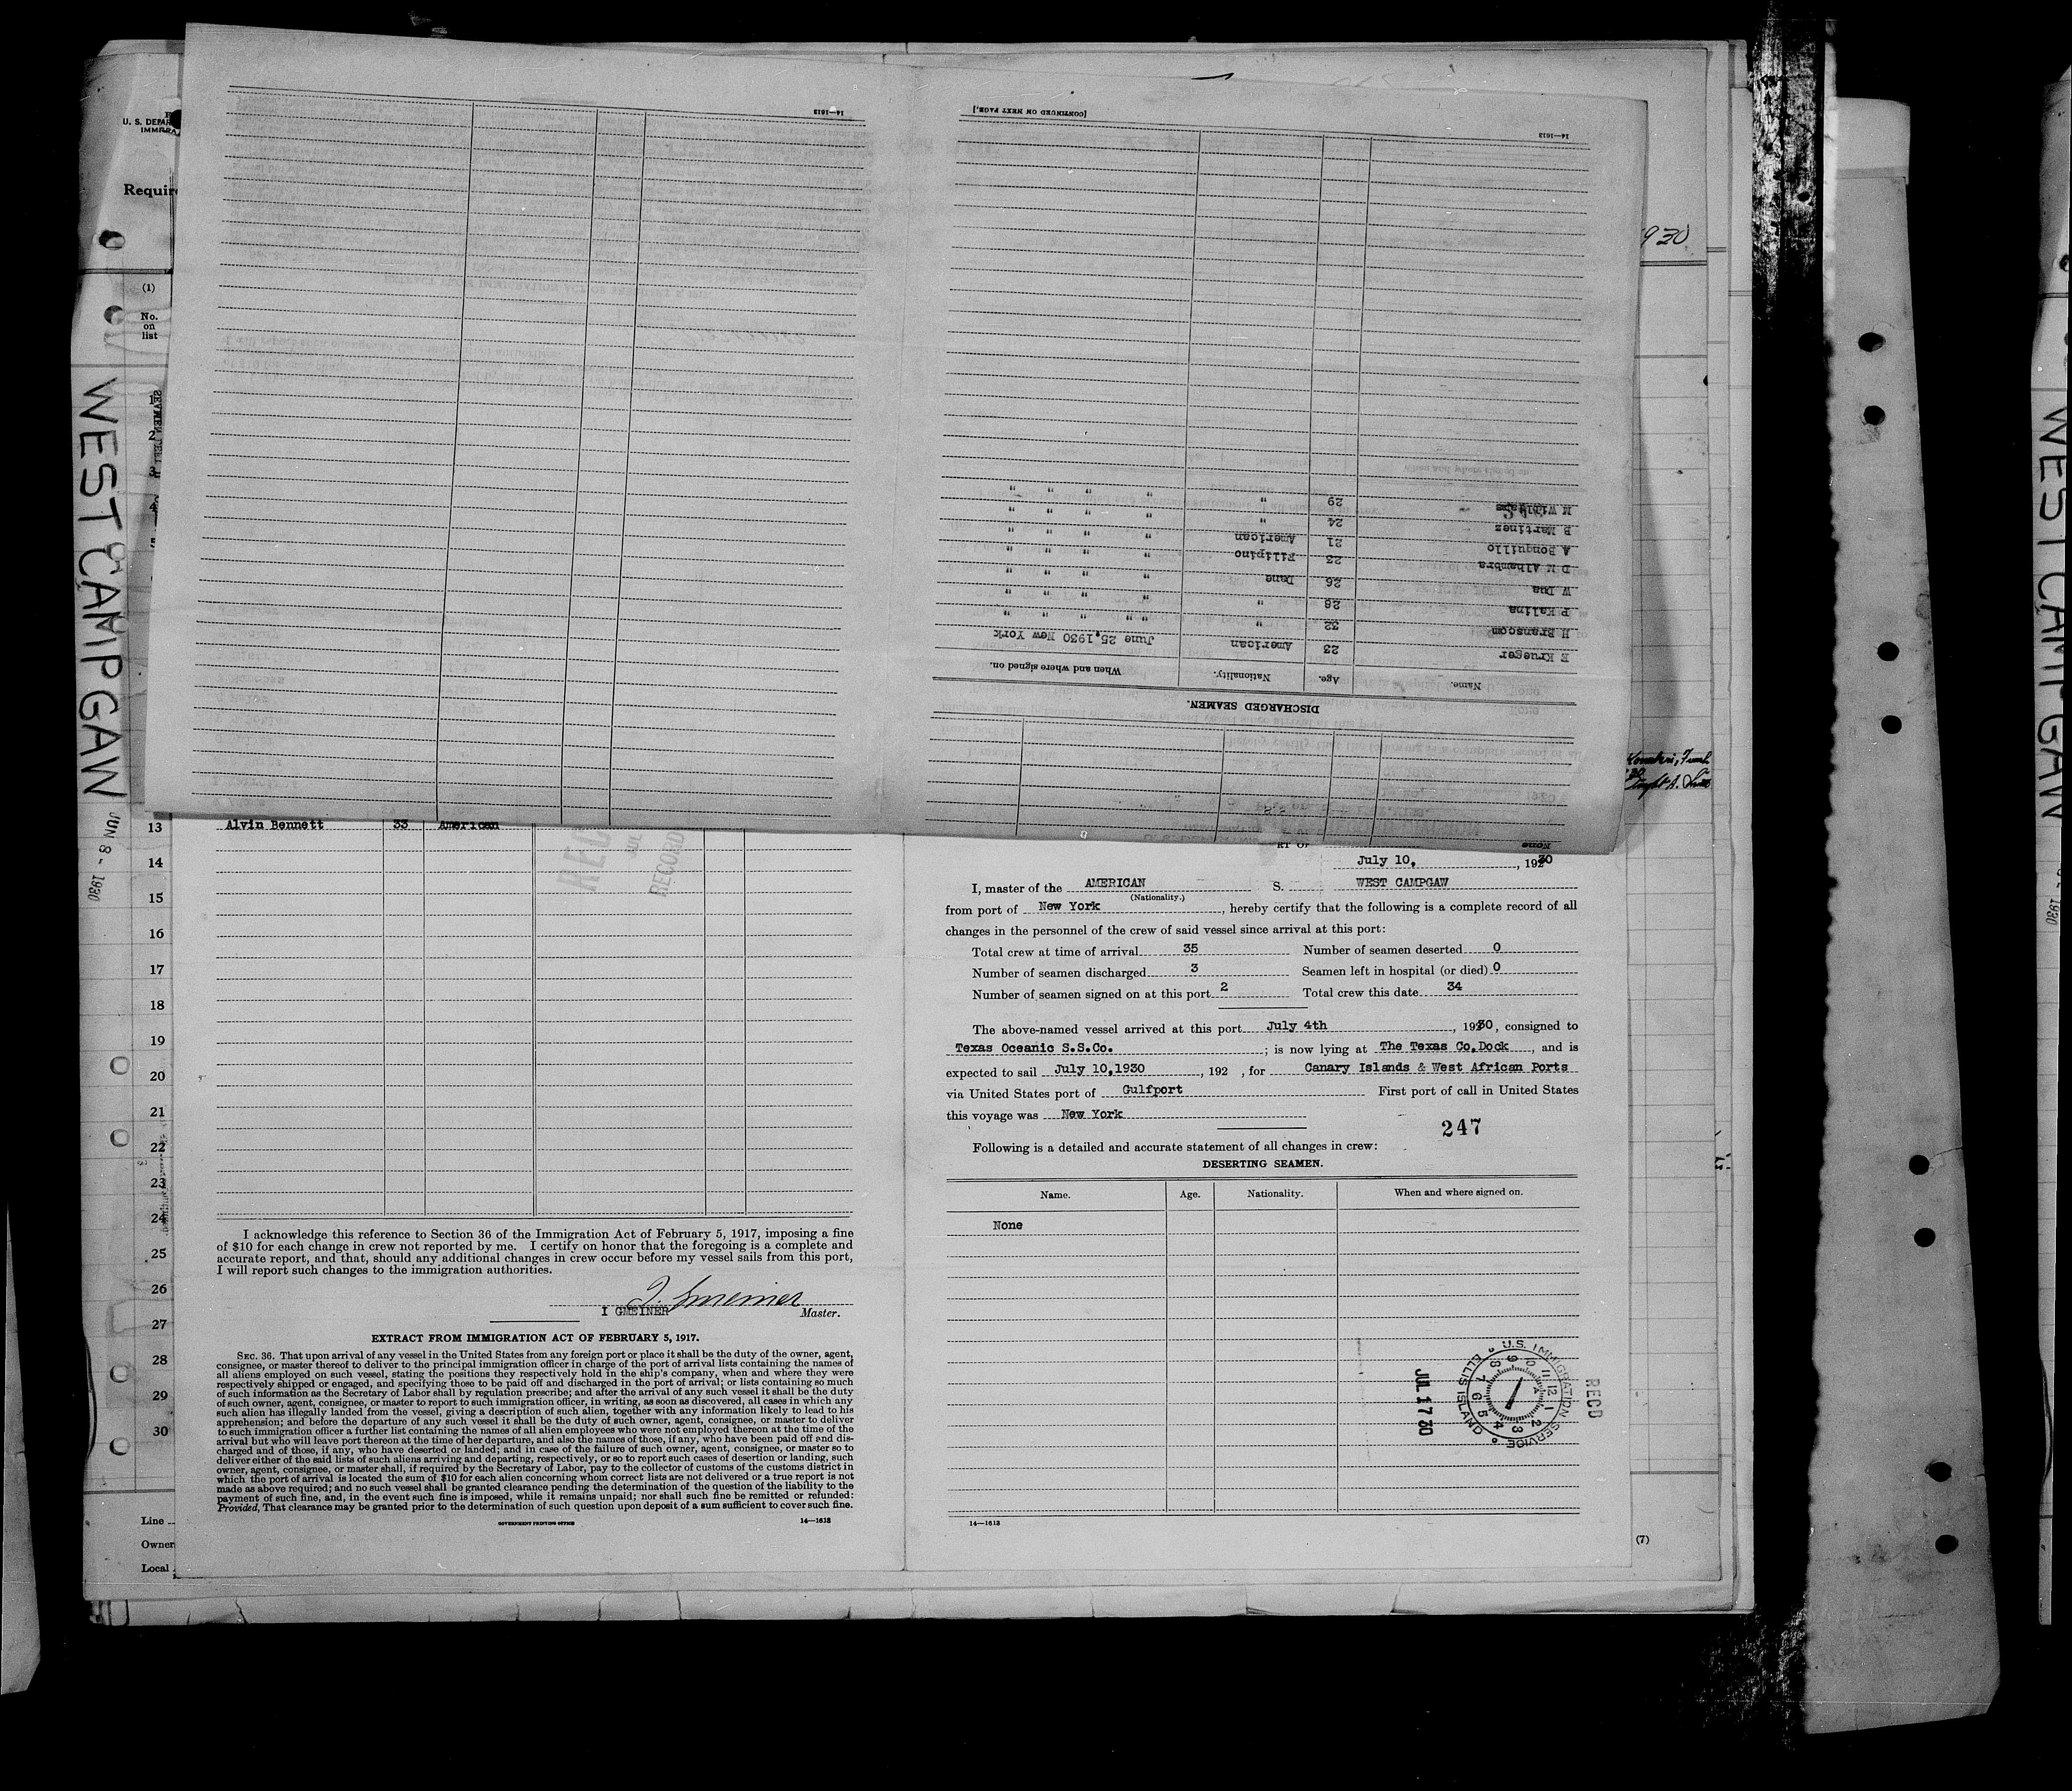 U. S. DEPAR
IMMIGRA
Require
(1)
No.
on
list
WEST CAMPGAW
JUN 8 - 1930
930
14—1613
[CONTINUED ON NEXT PAGE.]
14—1613
DISCHARGED SEAMEN.
Name. Age. Nationality. When and where signed on.
E Krueger 23 American June 25,1930 New York
H Branscom 32 " " " " "
P Kalina 28 " " " " "
W Dua 26 Dane " " " "
D M Alhambra 23 Filipino " " " "
A Bonquillo 21 American " " " "
B Martinez 24 " " " " "
29 " " " " "
1
2
3
4
13
14
15
16
17
18
19
20
21
22
23
24
25
26
27
28
29
30
Line
Owner
Local
Alvin Bennett 33 American
REC
JUL
RECORD
I acknowledge this reference to Section 36 of the Immigration Act of February 5, 1917, imposing a fine
of $10 for each change in crew not reported by me. I certify on honor that the foregoing is a complete and
accurate report, and that, should any additional changes in crew occur before my vessel sails from this port,
I will report such changes to the immigration authorities.
I. Gmeiner
I GMEINER Master.
EXTRACT FROM IMMIGRATION ACT OF FEBRUARY 5, 1917.
SEC. 36. That upon arrival of any vessel in the United States from any foreign port or place it shall be the duty of the owner, agent,
consignee, or master thereof to deliver to the principal immigration officer in charge of the port of arrival lists containing the names of
all aliens employed on such vessel, stating the positions they respectively hold in the ship's company, when and where they were
respectively shipped or engaged, and specifying those to be paid off and discharged in the port of arrival; or lists containing so much
of such information as the Secretary of Labor shall by regulation prescribe; and after the arrival of any such vessel it shall be the duty
of such owner, agent, consignee, or master to report to such immigration officer, in writing, as soon as discovered, all cases in which any
such alien has illegally landed from the vessel, giving a description of such alien, together with any information likely to lead to his
apprehension; and before the departure of any such vessel it shall be the duty of such owner, agent, consignee, or master to deliver
to such immigration officer a further list containing the names of all alien employees who were not employed thereon at the time of the
arrival but who will leave port thereon at the time of her departure, and also the names of those, if any, who have been paid off and dis-
charged and of those, if any, who have deserted or landed; and in case of the failure of such owner, agent, consignee, or master so to
deliver either of the said lists of such aliens arriving and departing, respectively, or so to report such cases of desertion or landing, such
owner, agent, consignee, or master shall, if required by the Secretary of Labor, pay to the collector of customs of the customs district in
which the port of arrival is located the sum of $10 for each alien concerning whom correct lists are not delivered or a true report is not
made as above required; and no such vessel shall be granted clearance pending the determination of the question of the liability to the
payment of such fine, and, in the event such fine is imposed, while it remains unpaid; nor shall such fine be remitted or refunded:
Provided, That clearance may be granted prior to the determination of such question upon deposit of a sum sufficient to cover such fine.
GOVERNMENT PRINTING OFFICE 14—1613
RT OF
July 10, , 1930
I, master of the AMERICAN S. WEST CAMPGAW
(Nationality.)
from port of New York, hereby certify that the following is a complete record of all
changes in the personnel of the crew of said vessel since arrival at this port:
Total crew at time of arrival 35 Number of seamen deserted 0
Number of seamen discharged 3 Seamen left in hospital (or died) 0
Number of seamen signed on at this port 2 Total crew this date 34
The above-named vessel arrived at this port July 4th, 1930, consigned to
Texas Oceanic S.S.Co. ; is now lying at The Texas Co.Dock, and is
expected to sail July 10,1930, 192 , for Canary Islands & West African Ports
via United States port of Gulfport First port of call in United States
this voyage was New York
247
Following is a detailed and accurate statement of all changes in crew:
DESERTING SEAMEN.
Name. Age. Nationality. When and where signed on.
None
U.S. IMMIGRATION SERVICE ELLIS ISLAND
JUL 17 30
RECD
14—1613
(7)
WEST CAMPGAW
1930